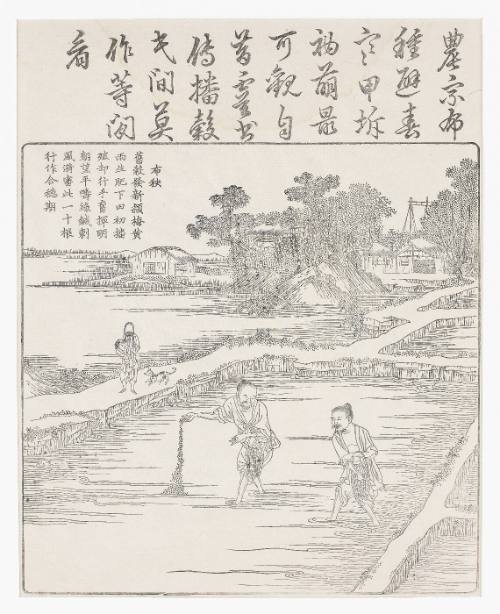 農家布
種避春
寒甲坼
初萌最
可觀自
昔虞書
傳播穀
民間莫
作等閒
看
布秧
舊穀發新穎梅黃
雨生肥下田初播
殖却行手奮揮明
朝望平疇綠鍼刺
風漪審此一寸根
行作合穗期